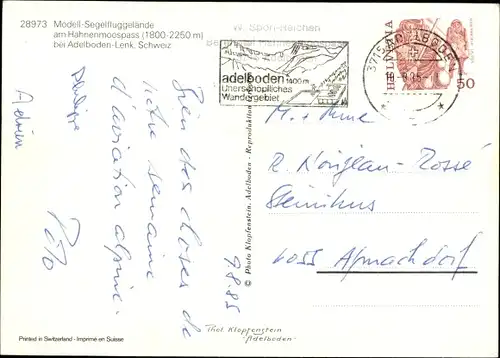 28973 Modell-Segelfluggelände
am Hahnenmoospass (1800-2250 m)
bei Adelboden-Lenk, Schweiz
adelboden 1400 m
Unerschöpfliches
Wandergebiet
3715 ADELBODEN
HELVETIA
50
Bien des choses de
notre semaine
d'aviation alpine.
Philippe
Adrien
9.8.85
M. + Mme
R.
Steinhus
6055 Alpnachdorf
© Photo Klopfenstein, Adelboden - Reproduktion
Printed in Switzerland - Imprimé en Suisse
Phot Klopfenstein
"Adelboden"